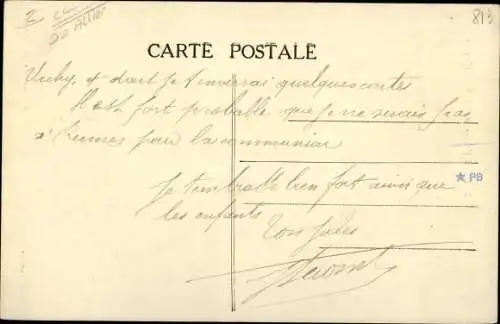 813
CARTE POSTALE
Vichy, et dont je t'enverrai quelques cartes
Il est fort probable que je ne serais pas
à pour la communion
★ PB
Je t'embrasse bien fort ainsi que
les enfants
Ton